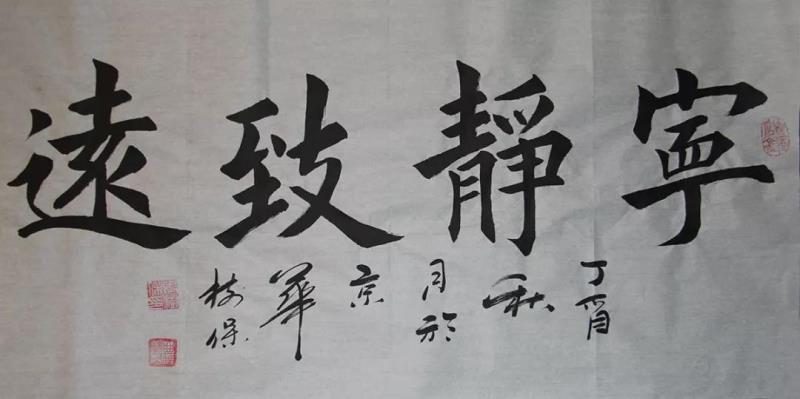 寧靜致遠
丁酉秋月於京華树保